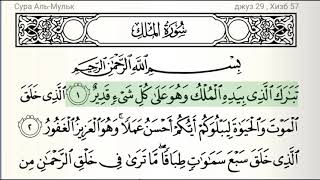 Сура Аль-Мульк джуз 29 , Хизб 57
سُورَةُ الْمُلْكِ
بِسْمِ اللَّهِ الرَّحْمَٰنِ الرَّحِيمِ
تَبَٰرَكَ الَّذِي بِيَدِهِ الْمُلْكُ وَهُوَ عَلَىٰ كُلِّ شَيْءٍ قَدِيرٌ ١ الَّذِي خَلَقَ
الْمَوْتَ وَالْحَيَوٰةَ لِيَبْلُوَكُمْ أَيُّكُمْ أَحْسَنُ عَمَلًا ۚ وَهُوَ الْعَزِيزُ الْغَفُورُ ٢
الَّذِي خَلَقَ سَبْعَ سَمَٰوَٰتٍ طِبَاقًا ۖ مَّا تَرَىٰ فِي خَلْقِ الرَّحْمَٰنِ مِن